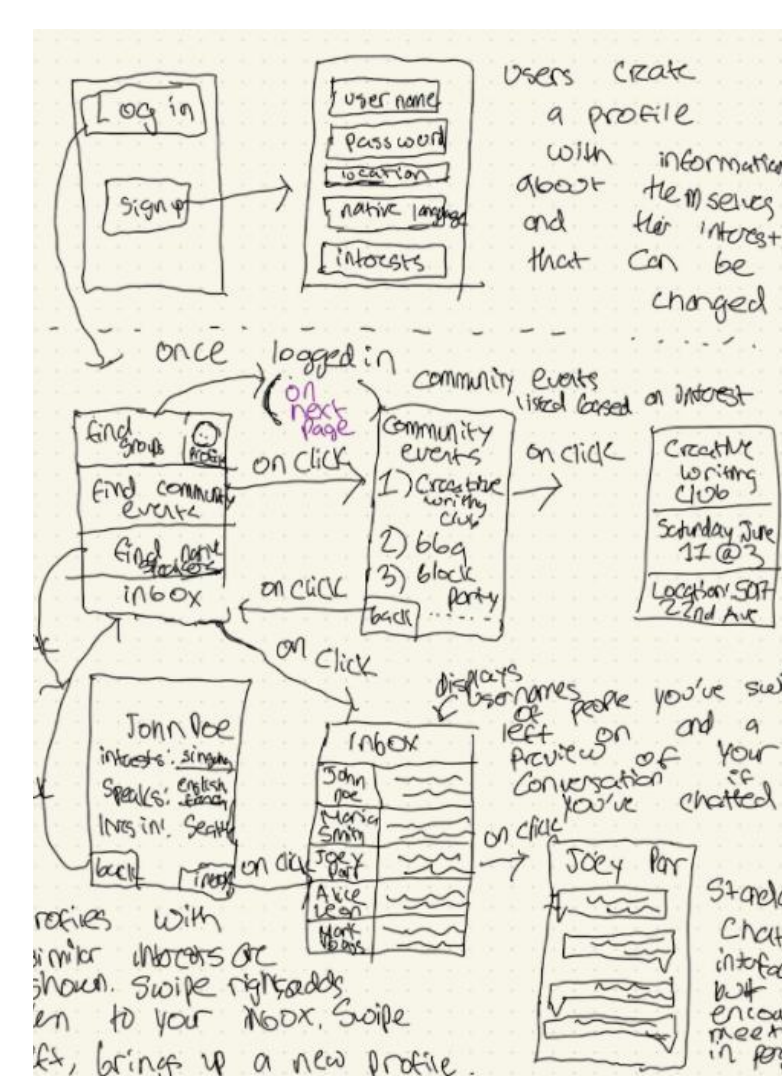 Log in
Sign up
user name
password
location
native language
interests
users create
a profile
with information
about themselves
and their interest
that can be
changed
once logged in
(on
next
page
find
groups
Profile
Find community
events
find native
speakers
inbox
on click
on click
community events
listed based on interest
Community
events
1) Creative
writing
club
2) bbq
3) block
party
back ......
on click
Creative
writing
club
Saturday June
11 @ 3
Location: 5017
22nd Ave
on click
John Doe
interests: singing
Speaks: english
lives in: Seattle
back
inbox
on click
displays
usernames
of people you've
left on and a
preview of your
conversation if
you've chatted
inbox
John
Doe
Maria
Smith
Joey
Parr
Alice
Leon
Mark
on click
Joey Parr
Chat
in
rofies with
imilar interests are
shown. Swipe right adds
em to your inbox. Swipe
eft, brings up a new profile.